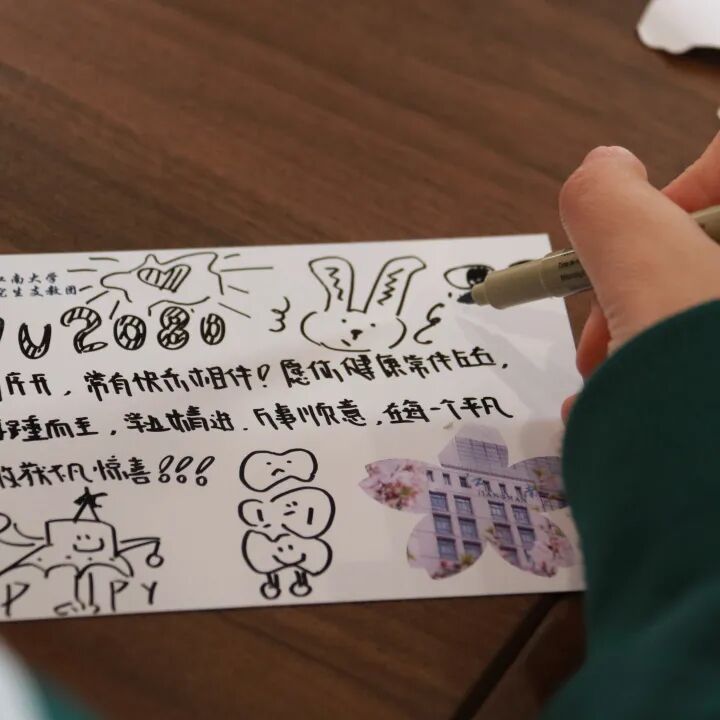 江南大学
究生支教团
u2080
开，常有快乐相伴！愿你健康常伴左右，
踵而至，学业精进，万事顺意，在每一个平凡
收获不凡惊喜！！！
JIANGNAN
PPY